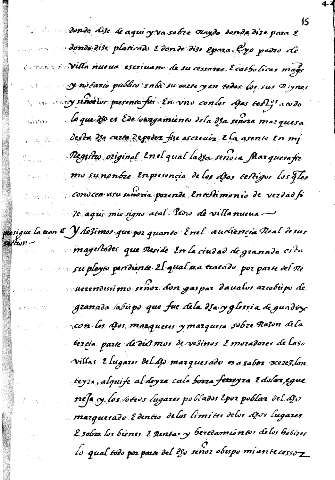 15
donde dize de aqui y va sobre Raydo donde dize para E
donde dize platicado E donde dize Epara. E yo pedro de
villa nueva escrivano de su cesarea E catholicas mag.s
y notario publico en la su corte y en todos los sus Reynos
y señorios presente fui. En uno con los dhos testigos a todo
lo que dho es E de otorgamiento de la dha señora marquesa
desta dha carta de poder fize escrevir E la asente en mi
Registro original. En el qual la dha señora Marquesa fir
mo su nombre En presencia de los dhos testigos los q les
conocen a su señoria porende. En testimonio de verdad fi
ze aqui mio signo atal. Pedro de villanueva
Y dezimos que por quanto En el audiencia Real de sus
magestades que Reside En la ciudad de granada esta
su pleyto pendiente. El qual se a tratado por parte del R
verendissimo señor don gaspar davalos arcobispo de
granada obispo que fue de la dha yglesia de guadix
con los dhos marqueses y marquesa sobre Razon de la
tercia parte de diezmos de vezinos E moradores de las
villas E lugares del dho marquesado
teyra, alquife aldeyra cala horra ferreyra E dolar, E gue
neja y los otros lugares poblados E por poblar del dho
marquesado E dentro de los limites de los dhos lugares
E sobre los bienes E Rentas y heredamientos de los habizes
lo qual todo por parte del dho señor obispo mi antecessor